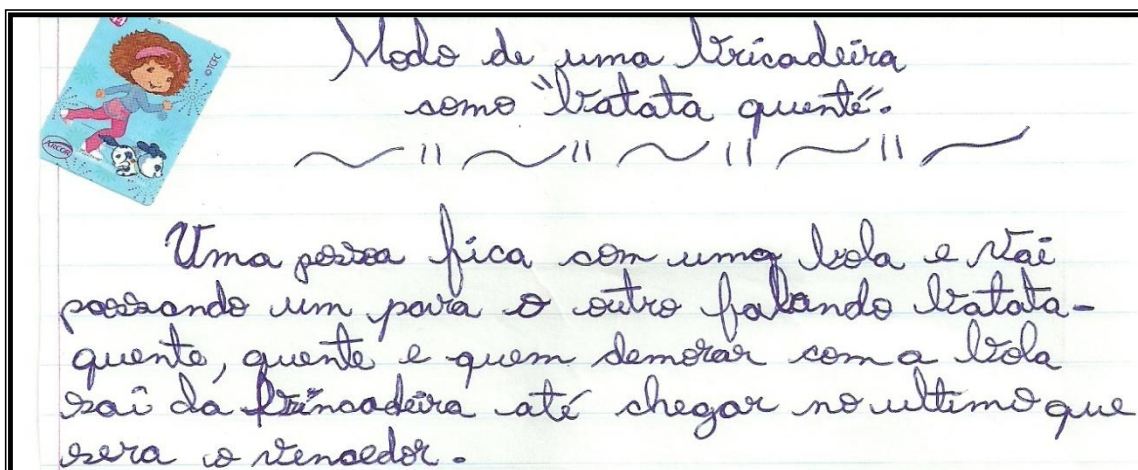 Modo de uma bricadeira
como "batata quente".
Uma pessoa fica com uma bola e vai
passando um para o outro falando batata-
quente, quente e quem demorar com a bola
sai da brincadeira até chegar no ultimo que
sera o vencedor.
©TCFC
ARCOR